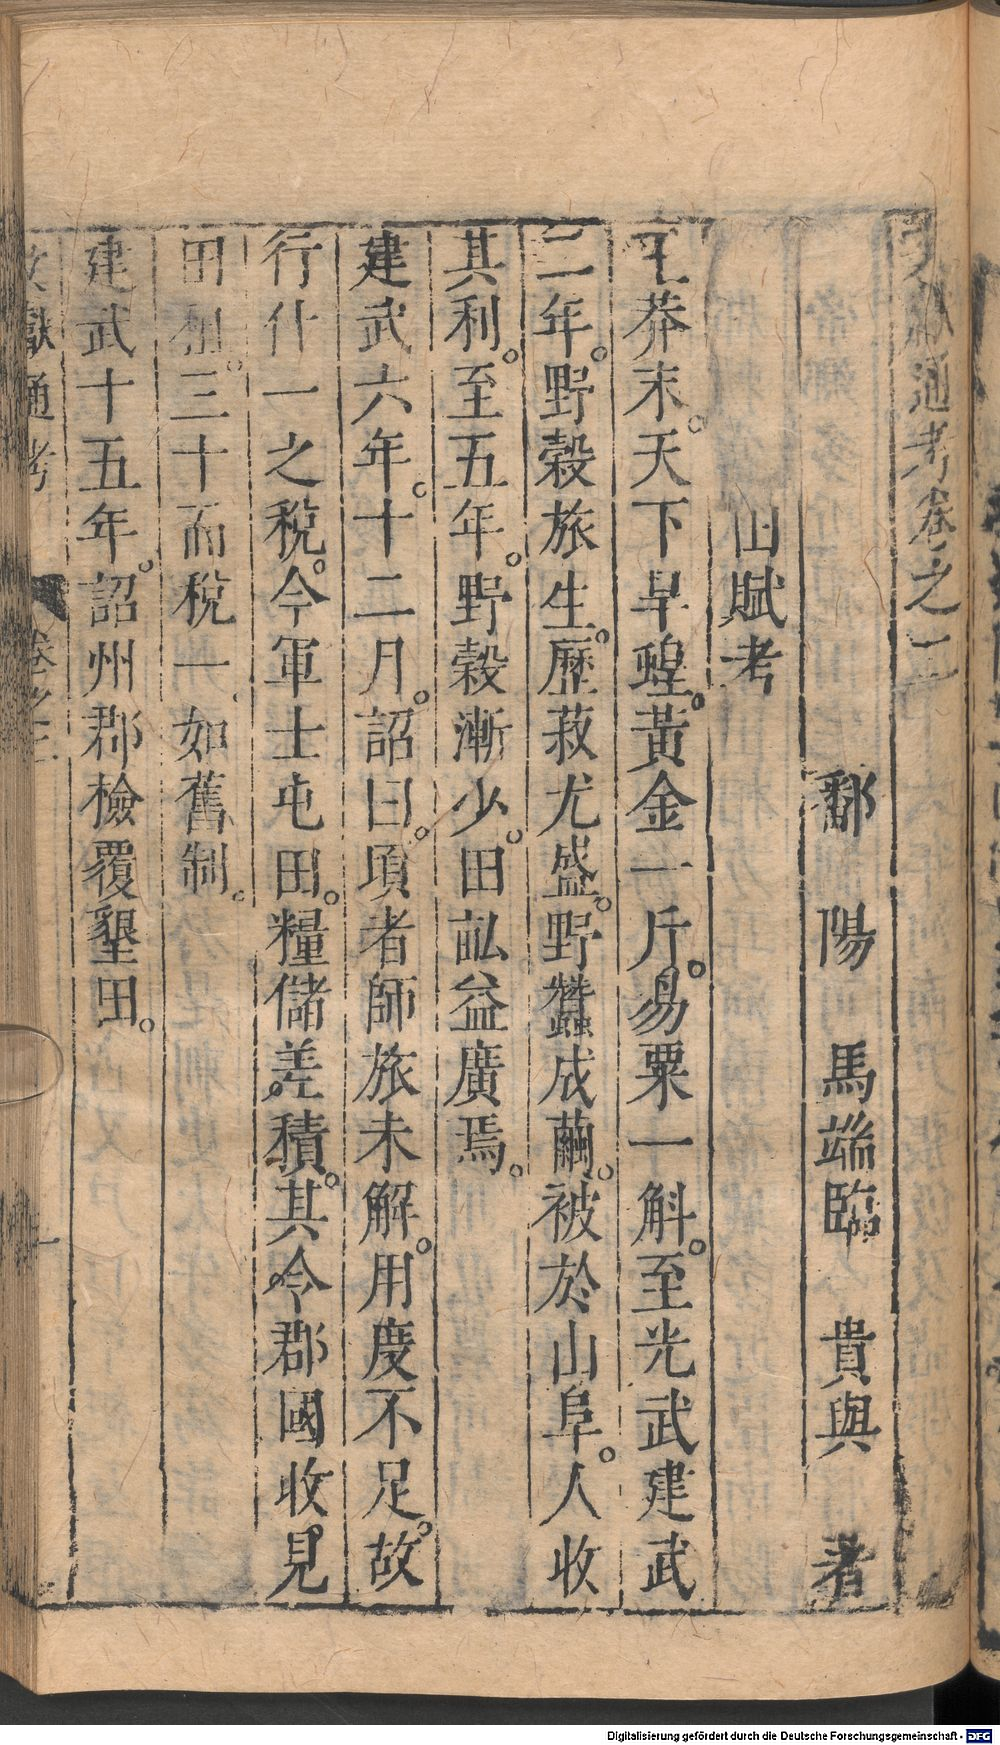 文獻通考卷之二
鄱陽 馬端臨 貴與 著
田賦考
王莽末。天下旱蝗。黃金一斤。易粟一斛。至光武建武
二年。野穀旅生。麻菽尤盛。野蠶成繭。被於山阜。人收
其利。至五年。野穀漸少。田畝益廣焉。
建武六年。十二月。詔曰。頃者師旅未解。用度不足。故
行什一之稅。今軍士屯田。糧儲差積。其令郡國收見
田租。三十而稅一。如舊制。
建武十五年。詔州郡檢覆墾田。
文獻通考 卷之二 一
Digitalisierung gefördert durch die Deutsche Forschungsgemeinschaft - DFG